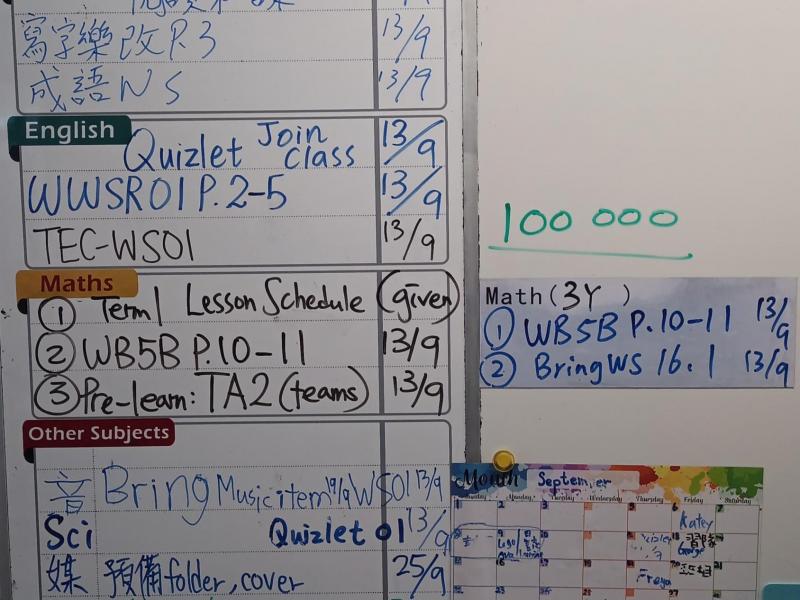 寫字樂改P.3 13/9
成語NS 13/9
English
Quizlet Join class 13/9
WWSR01 P.2-5 13/9
TEC-WS01 13/9
100 000
Maths
① Term 1 Lesson Schedule (given)
② WB5B P.10-11 13/9
③ Pre-learn: TA2 (teams) 13/9
Math (3Y)
① WB5B P.10-11 13/9
② Bring WS 16.1 13/9
Other Subjects
音 Bring Music item 19/9 WS01 13/9
Sci Quizlet 01 13/9
媒 預備folder, cover 25/9
Month September
Monday Tuesday Wednesday Thursday Friday Saturday
Katey
George
Freya